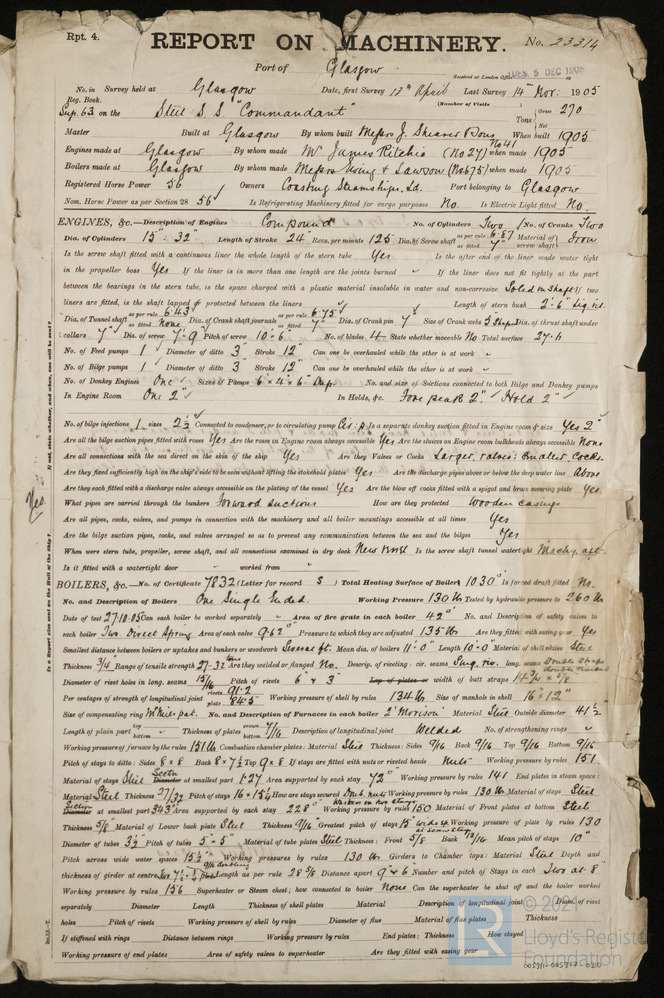 Rpt. 4.
REPORT ON MACHINERY.
No. 23314
Port of Glasgow
Received at London Office TUES. 5 DEC 1905
No. in Survey held at Glasgow Date, first Survey 13th April Last Survey 14th Nov: 1905
Reg. Book. (Number of Visits
Sup. 63 on the Steel S S "Commandant" Tons Gross 270
Net
Master Built at Glasgow By whom built Messrs J. Shearer & Sons No 41 When built 1905
Engines made at Glasgow By whom made Mr James Ritchie (No 27) when made 1905
Boilers made at Glasgow By whom made Messrs Lawson (No 675) when made 1905
Registered Horse Power 56 Owners Coasting Steamships. Ld. Port belonging to Glasgow
Nom. Horse Power as per Section 28 56 Is Refrigerating Machinery fitted for cargo purposes No. Is Electric Light fitted No.
ENGINES, &c.—Description of Engines Compound No. of Cylinders Two No. of Cranks Two
Dia. of Cylinders 15" : 32" Length of Stroke 24 Revs. per minute 125 Dia. of Screw shaft as per rule 6.87 as fitted 7" Material of screw shaft Iron
Is the screw shaft fitted with a continuous liner the whole length of the stern tube Yes Is the after end of the liner made water tight
in the propeller boss Yes If the liner is in more than one length are the joints burned " If the liner does not fit tightly at the part
between the bearings in the stern tube, is the space charged with a plastic material insoluble in water and non-corrosive Solid on shaft If two
liners are fitted, is the shaft lapped or protected between the liners " Length of stern bush 2'-6"
Dia. of Tunnel shaft as per rule 6.43 as fitted None Dia. of Crank shaft journals as per rule 6.75 as fitted 7" Dia. of Crank pin 7" Size of Crank webs Dia. of thrust shaft under
collars 7" Dia. of screw 7'-9 Pitch of screw 10'-6" No. of blades 4 State whether moveable No Total surface 27
No. of Feed pumps 1 Diameter of ditto 3" Stroke 12" Can one be overhauled while the other is at work "
No. of Bilge pumps 1 Diameter of ditto 3" Stroke 12" Can one be overhauled while the other is at work "
No. of Donkey Engines One Sizes of Pumps 6" x 4 x 6" Dup. No. and size of Suctions connected to both Bilge and Donkey pumps
In Engine Room One 2" In Holds, &c. Fore peak 2" Hold 2"
No. of bilge injections 1 sizes 2½ Connected to condenser, or to circulating pump Cir. p Is a separate donkey suction fitted in Engine room & size Yes 2"
Are all the bilge suction pipes fitted with roses Yes Are the roses in Engine room always accessible Yes Are the sluices on Engine room bulkheads always accessible None
Are all connections with the sea direct on the skin of the ship Yes Are they Valves or Cocks Larger, valves; smaller, cocks.
Are they fixed sufficiently high on the ship's side to be seen without lifting the stokehold plates Yes Are the discharge pipes above or below the deep water line Above
Are they each fitted with a discharge valve always accessible on the plating of the vessel Yes Are the blow off cocks fitted with a spigot and brass covering plate Yes
What pipes are carried through the bunkers Forward suctions How are they protected Wooden casing
Are all pipes, cocks, valves, and pumps in connection with the machinery and all boiler mountings accessible at all times Yes
Are the bilge suction pipes, cocks, and valves arranged so as to prevent any communication between the sea and the bilges Yes
When were stern tube, propeller, screw shaft, and all connections examined in dry dock New Vessel Is the screw shaft tunnel watertight Machy aft.
Is it fitted with a watertight door " worked from "
BOILERS, &c.—No. of Certificate 7832 (Letter for record S) Total Heating Surface of Boilers 1030 Is forced draft fitted No.
No. and Description of Boilers One Single Ended Working Pressure 130 lbs Tested by hydraulic pressure to 260 lbs
Date of test 27.10.05 Can each boiler be worked separately " Area of fire grate in each boiler 42 No. and Description of safety valves to
each boiler Two Direct Spring Area of each valve 9.62" Pressure to which they are adjusted 135 lbs Are they fitted with easing gear Yes
Smallest distance between boilers or uptakes and bunkers or woodwork Several ft. Mean dia. of boilers 11'-0" Length 10'-0 Material of shell plates Steel
Thickness 3/4 Range of tensile strength 27-32 tons Are they welded or flanged No. Descrip. of riveting: cir. seams long. seams Double Straps
Diameter of rivet holes in long. seams 15/16 Pitch of rivets 6" & 3" Lap of plates or width of butt straps
Per centages of strength of longitudinal joint rivets 91.2 plate 84.5 Working pressure of shell by rules 134 lbs Size of manhole in shell 16" x 12"
Size of compensating ring McNeil pat. No. and Description of Furnaces in each boiler 2 Morison Material Steel Outside diameter 41½"
Length of plain part top bottom Thickness of plates crown bottom 7/16 Description of longitudinal joint Welded No. of strengthening rings "
Working pressure of furnace by the rules 151 lbs Combustion chamber plates: Material Steel Thickness: Sides 9/16 Back 9/16 Top 9/16 Bottom 9/16
Pitch of stays to ditto: Sides 8 x 8 Back 8 x 7½ Top 9 x 8 If stays are fitted with nuts or riveted heads Nuts Working pressure by rules 151
Material of stays Steel Section Diameter at smallest part 1.27 Area supported by each stay 72" Working pressure by rules 141 End plates in steam space:
Material Steel Thickness 27/32 Pitch of stays 16 x 15¼ How are stays secured Dub. nuts Working pressure by rules 130 lbs Material of stays Steel
Section Diameter at smallest part 3.43 Area supported by each stay 228" Working pressure by rules 150 Material of Front plates at bottom Steel
Thickness 5/8" Material of Lower back plate Steel Thickness 9/16" Greatest pitch of stays 15" wide sp. Working pressure of plate by rules 130
Diameter of tubes 3½ Pitch of tubes 5" x 5" Material of tube plates Steel Thickness: Front 5/8 Back 13/16 Mean pitch of stays 10"
Pitch across wide water spaces 15½" Working pressures by rules 130 lbs Girders to Chamber tops: Material Steel Depth and
thickness of girder at centre Length as per rule 28 5/8 Distance apart 9 & 6 Number and pitch of Stays in each Two at 8"
Working pressure by rules 156 Superheater or Steam chest; how connected to boiler None Can the superheater be shut off and the boiler worked
separately Diameter Length Thickness of shell plates Material Description of longitudinal joint Diam. of rivet
holes Pitch of rivets Working pressure of shell by rules Diameter of flue Material of flue plates Thickness
If stiffened with rings Distance between rings Working pressure by rules End plates: Thickness How stayed
Working pressure of end plates Area of safety valves to superheater Are they fitted with easing gear
Yes
Is a Report also sent on the Hull of the Ship?
If not, state whether, and when, one will be sent?
© 2021
Lloyd's Register
Foundation